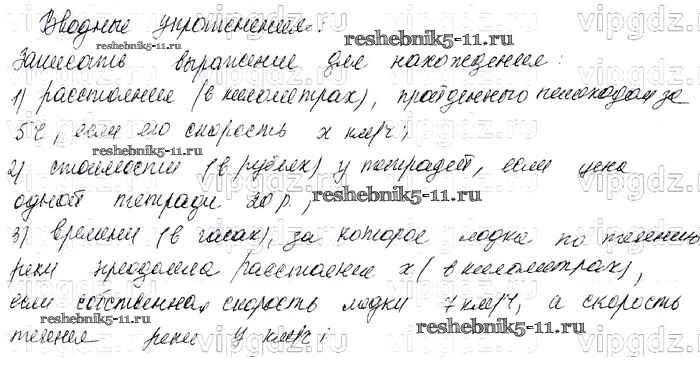 Вводные упражнения:
Записать выражение для нахождения:
1) расстояния (в километрах), пройденного пешеходом за
5 ч, если его скорость x км/ч;
2) стоимости (в рублях) y тетрадей, если цена
одной тетради 20 р.;
3) времени (в часах), за которое лодка по течению
реки преодолела расстояние x (в километрах),
если собственная скорость лодки 7 км/ч, а скорость
течения реки y км/ч;
reshebnik5-11.ru
reshebnik5-11.ru
reshebnik5-11.ru
reshebnik5-11.ru
reshebnik5-11.ru
reshebnik5-11.ru
vipgdz.ru
vipgdz.ru
vipgdz.ru
vipgdz.ru